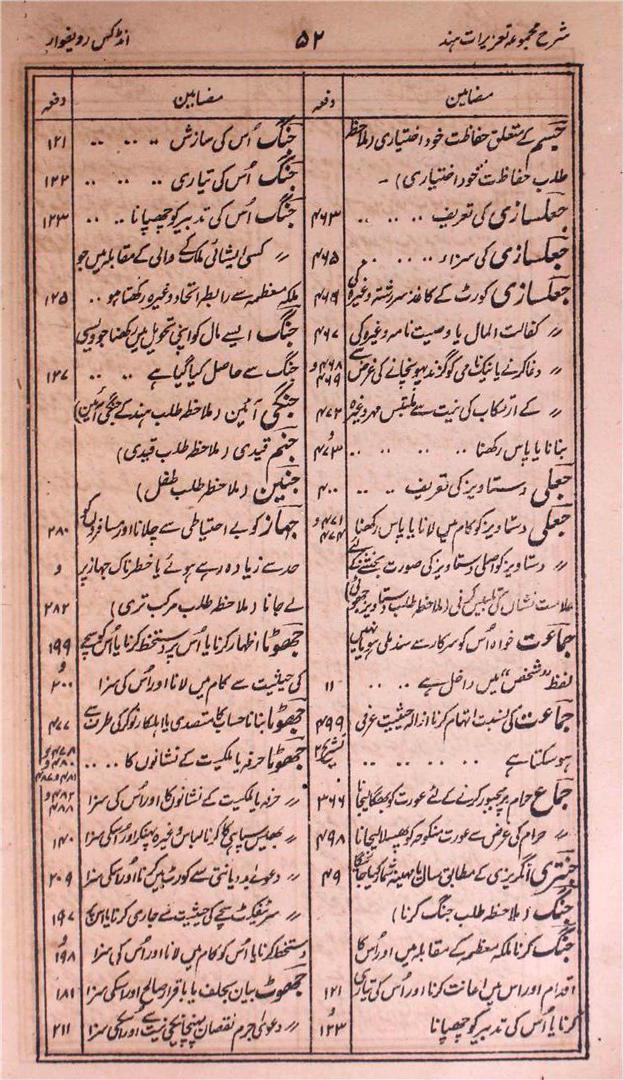 شرح مجموعہ تعزیرات ہند
۵۲
انڈکس ردیفوار
مضامین دفعہ
جسم کے متعلق حفاظت خود اختیاری (ملاحظہ
طلب حفاظت خود اختیاری) -
جعلسازی کی تعریف .. .. .. ۴۶۳
جعلسازی کی سزاء .. .. .. ۴۶۵
جعلسازی کورٹ کے کاغذ سررشتہ وغیرہ کی ۴۶۶
〃 کفالت المال یا وصیت نامہ وغیرہ کی ۴۶۷
〃 دغا کرنے یا نیکنامی کو گزند پہونچانے کی غرض سے ۴۶۸ و ۴۶۹
〃 کے ارتکاب کی نیت سے ملتبس مہر وغیرہ ۴۷۲
بنانا یا پاس رکھنا .. .. .. .. و ۴۷۳
جعلی دستاویز کی تعریف .. .. ۴۷۰
جعلی دستاویز کو کام میں لانا یا پاس رکھنا ۴۷۱ و ۴۷۴
〃 دستاویز کو اصلی دستاویز کی صورت بخشنے کے لئے
علامت نشان کی تلبیس کرنی (ملاحظہ طلب دستاویز جھوٹی)
جماعت خواہ اُس کو سرکار سے سند ملی ہو یا نہیں
لفظ "شخص" میں داخل ہے .. .. ۱۱
جماعت کی نسبت اتہام کرنا ازالہ حیثیت عرفی ۴۹۹
ہوسکتا ہے .. .. .. .. تشریح ۲
جماع حرام پر مجبور کرنے کے لئے عورت کو بھگا لیجانا ۳۶۶
〃 حرام کی غرض سے عورت منکوحہ کو پھسلا لیجانا ۴۹۸
جنتری انگریزی کے مطابق سال یا مہینہ شمار کیا جائیگا ۴۹
جنگ (ملاحظہ طلب جنگ کرنا)
جنگ کرنا ملکہ معظمہ کے مقابلہ میں اور اُس کا
اقدام اور اس میں اعانت کرنا اور اُس کی تیاری ۱۲۱
کرنا یا اُس کی تدبیر کو چھپانا و ۱۲۳
مضامین دفعہ
جنگ اُس کی سازش .. .. .. ۱۲۱
جنگ اُس کی تیاری .. .. .. ۱۲۲
جنگ اُس کی تدبیر کو چھپانا .. .. ۱۲۳
〃 کسی ایشائی ملک کے والی کے مقابلہ میں جو
ملکہ معظمہ سے رابطہ اتحاد وغیرہ رکھتا ہو .. ۱۲۵
جنگ ایسے مال کو اپنی تحویل میں رکھنا جو ویسی
جنگ سے حاصل کیا گیا ہے .. .. ۱۲۷
جنگی آئین (ملاحظہ طلب ہند کے جنگی آئین)
جنم قیدی (ملاحظہ طلب قیدی)
جنین (ملاحظہ طلب طفل)
جہاز کو بے احتیاطی سے چلانا اور مسافروں کو ۲۸۰
حد سے زیادہ بھرے ہوئے یا خطرناک جہاز پر و
لے جانا (ملاحظہ طلب مرکب تری) ۲۸۲
جھوٹا اظہار کرنا یا اُس پر دستخط کرنا یا اُس کو سچے ۱۹۹
کی حیثیت سے کام میں لانا اور اُس کی سزا و ۲۰۰
جھوٹا بنانا حساب کا متصدی یا اہلکار نوکر کی طرف سے ۴۷۷
جھوٹا حرفہ یا ملکیت کے نشانوں کا .. ..
〃 حرفہ یا ملکیت کے نشانوں کا اور اُس کی سزا
〃 بھیس سپاہی کا کرنا لباس وغیرہ پہنکر اور اُسکی سزا ۱۴۰
〃 دعوے بددیانتی سے کورٹ میں کرنا اور اُسکی سزا ۲۰۹
〃 سرٹیفکٹ سچے کی حیثیت سے جاری کرنا یا اُس پر ۱۹۷
دستخط کرنا یا اُس کو کام میں لانا اور اُس کی سزا و ۱۹۸
جھوٹ بیان بحلف یا باقرار صالح اور اُسکی سزا ۱۸۱
〃 دعوئی جرم نقصان پہنچانیکی نیت سے اور اُسکی سزا ۲۱۱